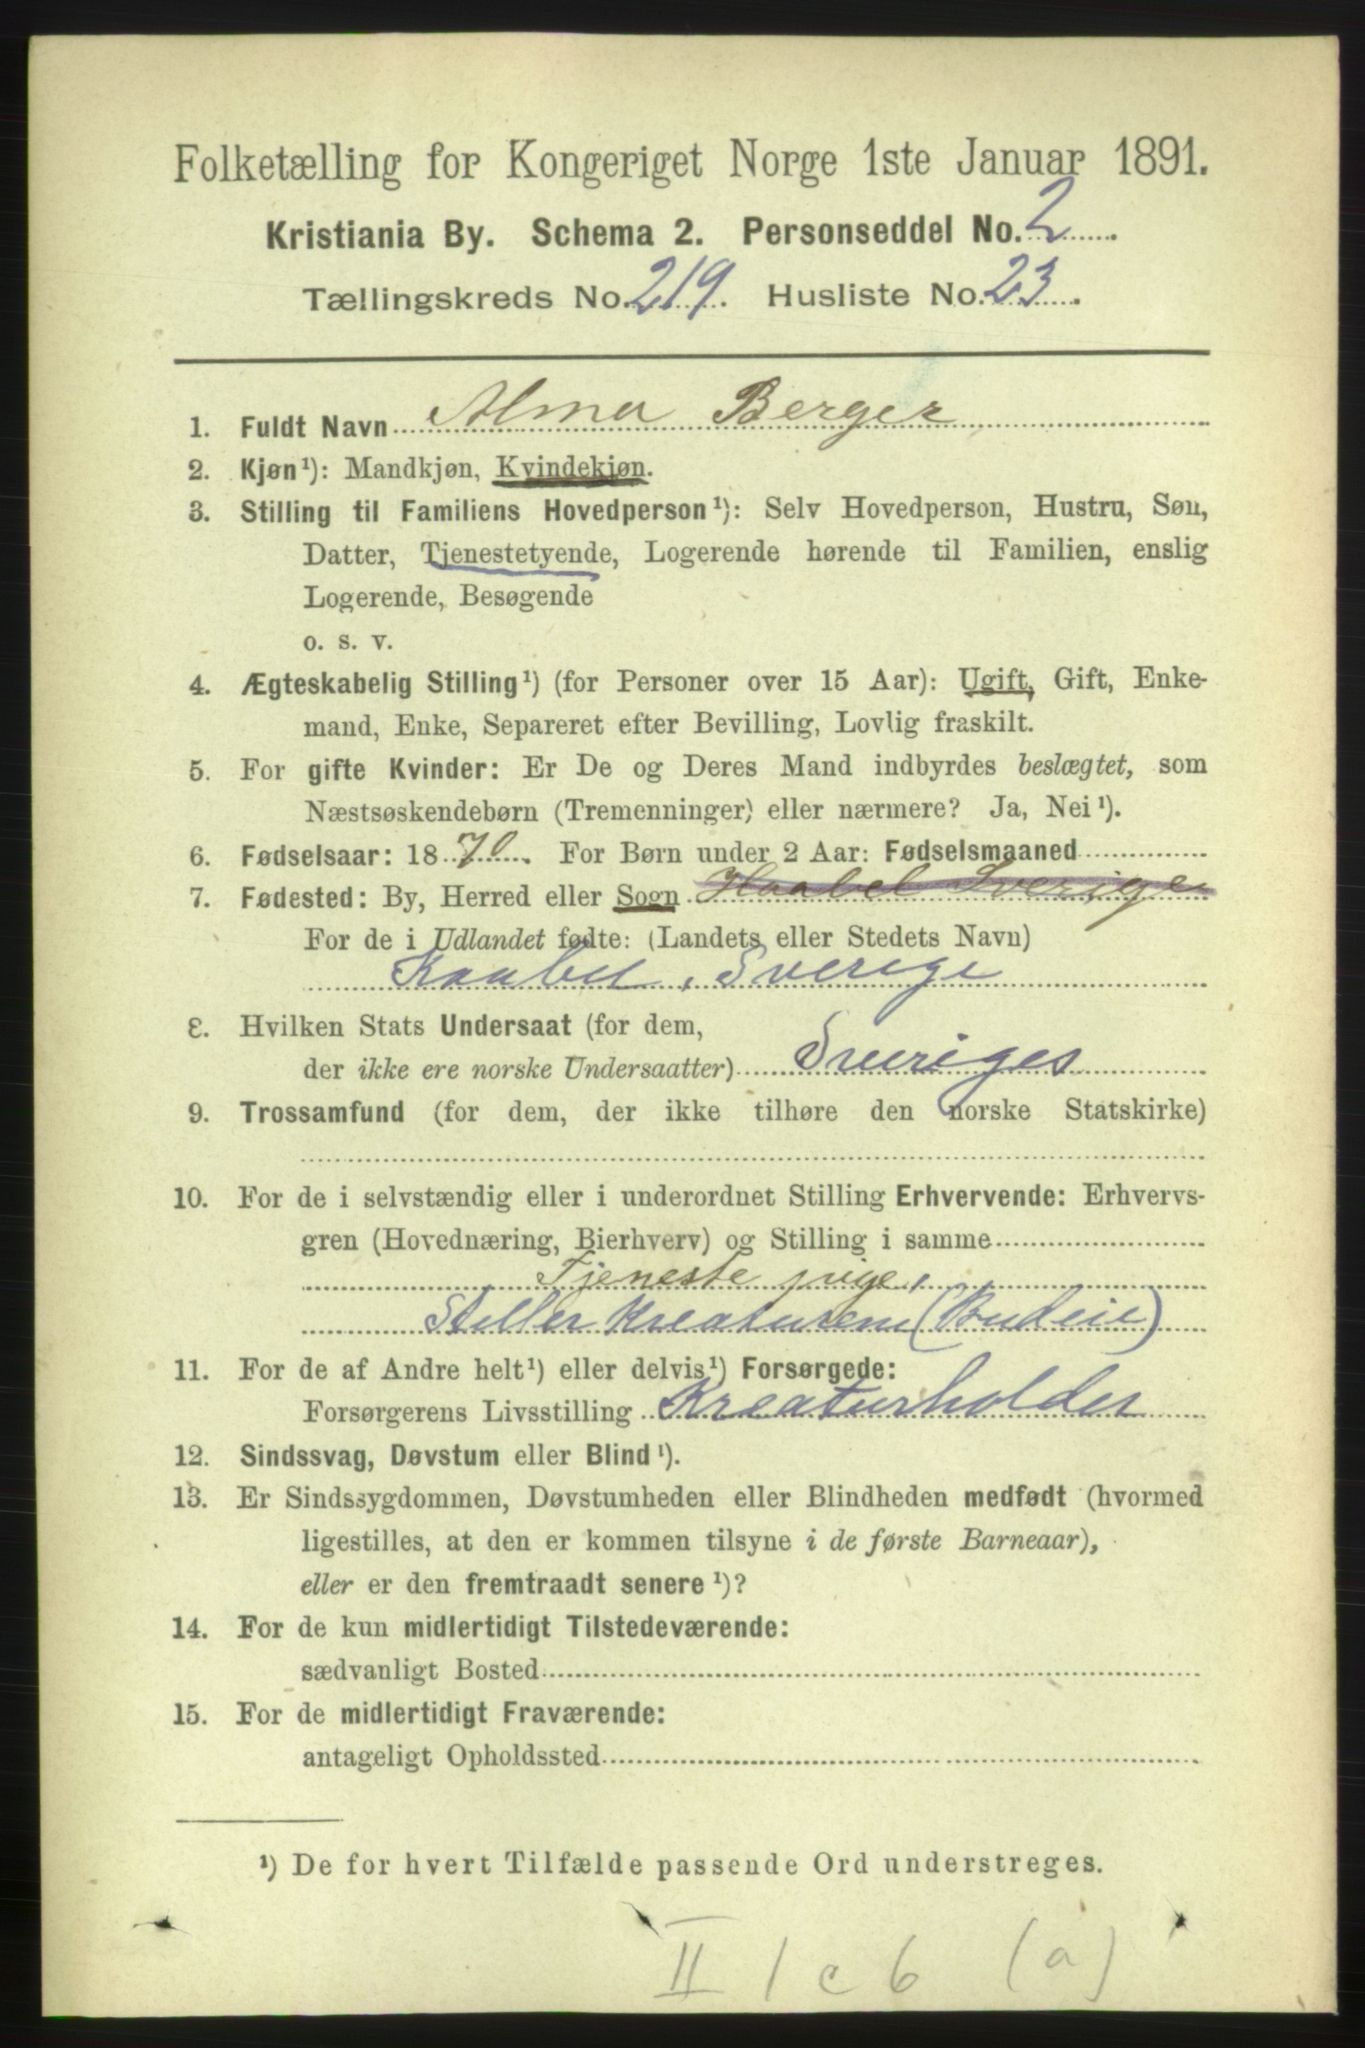 Folketælling for Kongeriget Norge 1ste Januar 1891.
Kristiania By. Schema 2. Personseddel No. 2
Tællingskreds No. 219. Husliste No. 23.
1. Fuldt Navn Alma Berger
2. Kjøn¹): Mandkjøn, Kvindekjøn.
3. Stilling til Familiens Hovedperson¹): Selv Hovedperson, Hustru, Søn,
Datter, Tjenestetyende, Logerende hørende til Familien, enslig
Logerende, Besøgende
o. s. v.
4. Ægteskabelig Stilling¹) (for Personer over 15 Aar): Ugift, Gift, Enke-
mand, Enke, Separeret efter Bevilling, Lovlig fraskilt.
5. For gifte Kvinder: Er De og Deres Mand indbyrdes beslægtet, som
Næstsøskendebørn (Tremenninger) eller nærmere? Ja, Nei¹).
6. Fødselsaar: 1870. For Børn under 2 Aar: Fødselsmaaned
7. Fødested: By, Herred eller Sogn Haabel Sverige
For de i Udlandet fødte: (Landets eller Stedets Navn)
Kaabel, Sverige
8. Hvilken Stats Undersaat (for dem,
der ikke ere norske Undersaatter) Sveriges
9. Trossamfund (for dem, der ikke tilhøre den norske Statskirke)
10. For de i selvstændig eller i underordnet Stilling Erhvervende: Erhvervs-
gren (Hovednæring, Bierhverv) og Stilling i samme
Tjeneste pige,
Steller Kreaturene (Budeie)
11. For de af Andre helt¹) eller delvis¹) Forsørgede:
Forsørgerens Livsstilling Kreaturholder
12. Sindssvag, Døvstum eller Blind¹).
13. Er Sindssygdommen, Døvstumheden eller Blindheden medfødt (hvormed
ligestilles, at den er kommen tilsyne i de første Barneaar),
eller er den fremtraadt senere¹)?
14. For de kun midlertidigt Tilstedeværende:
sædvanligt Bosted
15. For de midlertidigt Fraværende:
antageligt Opholdssted
¹) De for hvert Tilfælde passende Ord understreges.
II 1 c 6 (a)